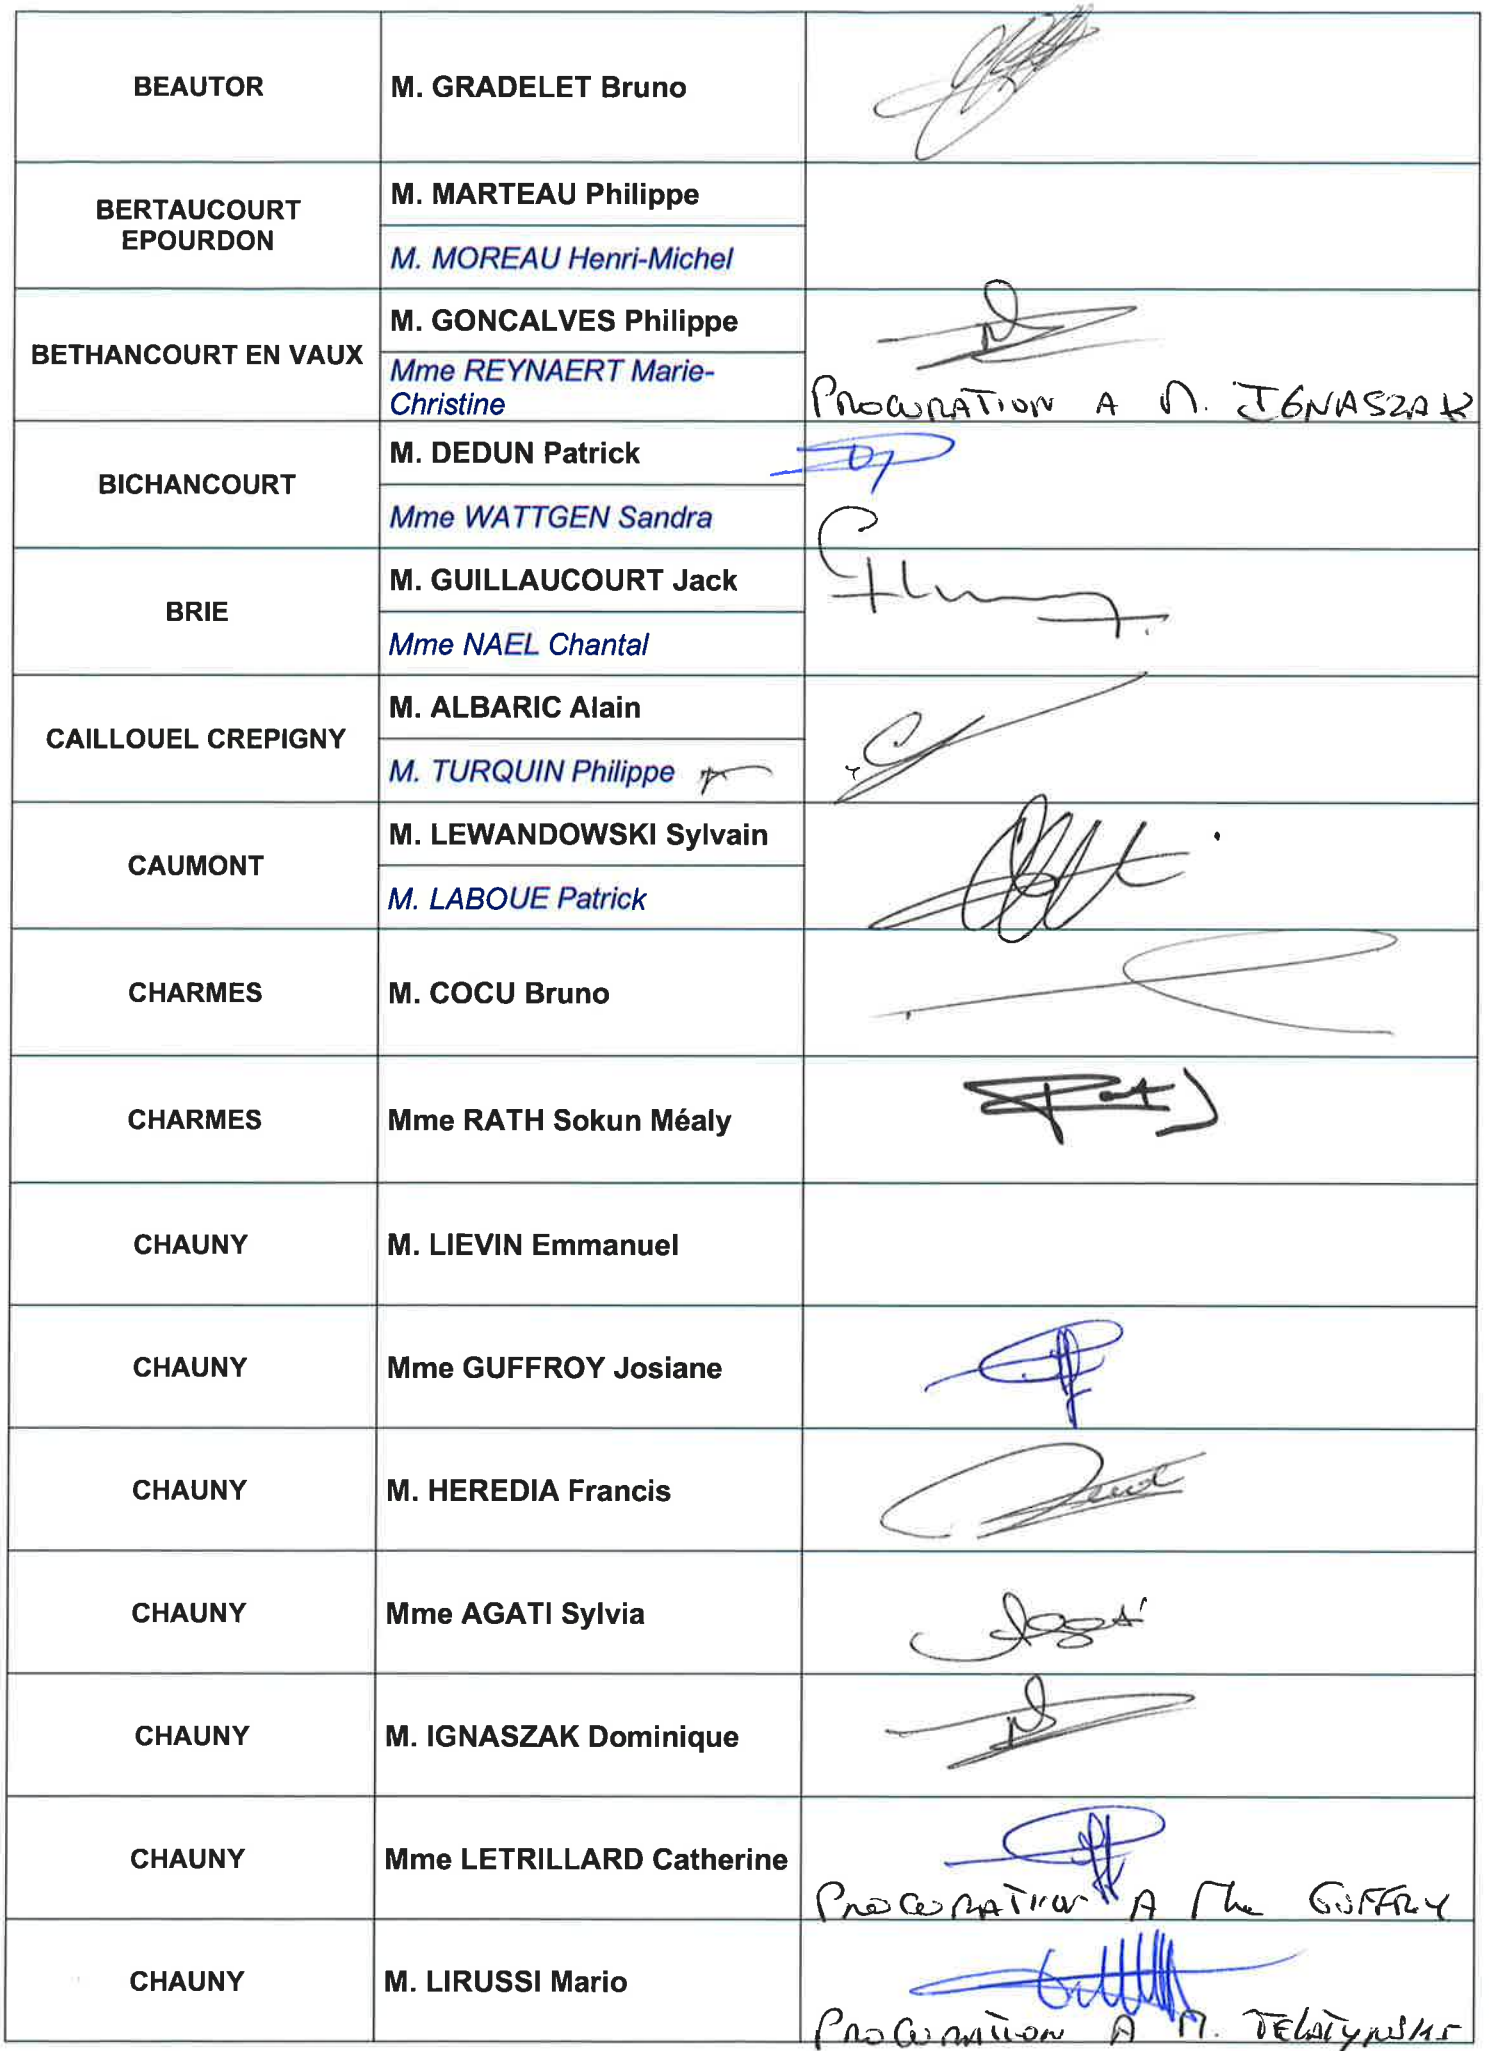 BEAUTOR
M. GRADELET Bruno
BERTAUCOURT
EPOURDON
M. MARTEAU Philippe
M. MOREAU Henri-Michel
BETHANCOURT EN VAUX
M. GONCALVES Philippe
Mme REYNAERT Marie-
Christine
PROCURATION A M. IGNASZAK
BICHANCOURT
M. DEDUN Patrick
Mme WATTGEN Sandra
BRIE
M. GUILLAUCOURT Jack
Mme NAEL Chantal
CAILLOUEL CREPIGNY
M. ALBARIC Alain
M. TURQUIN Philippe
CAUMONT
M. LEWANDOWSKI Sylvain
M. LABOUE Patrick
CHARMES
M. COCU Bruno
CHARMES
Mme RATH Sokun Méaly
CHAUNY
M. LIEVIN Emmanuel
CHAUNY
Mme GUFFROY Josiane
CHAUNY
M. HEREDIA Francis
CHAUNY
Mme AGATI Sylvia
CHAUNY
M. IGNASZAK Dominique
CHAUNY
Mme LETRILLARD Catherine
PROCURATION A Mme
CHAUNY
M. LIRUSSI Mario
PROCURATION A M.